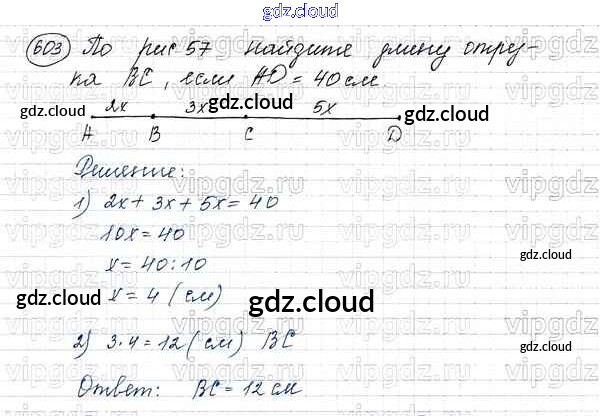 gdz.cloud
603 По рис 57 найдите длину отрез-
ка BC, если AD = 40 см.
gdz.cloud gdz.cloud gdz.cloud
2x 3x 5x
A B C D
Решение:
1) 2x + 3x + 5x = 40
10x = 40
x = 40 : 10
gdz.cloud
x = 4 (см)
gdz.cloud gdz.cloud
2) 3·4 = 12 (см) BC
gdz.cloud
Ответ: BC = 12 см
vipgdz.ru